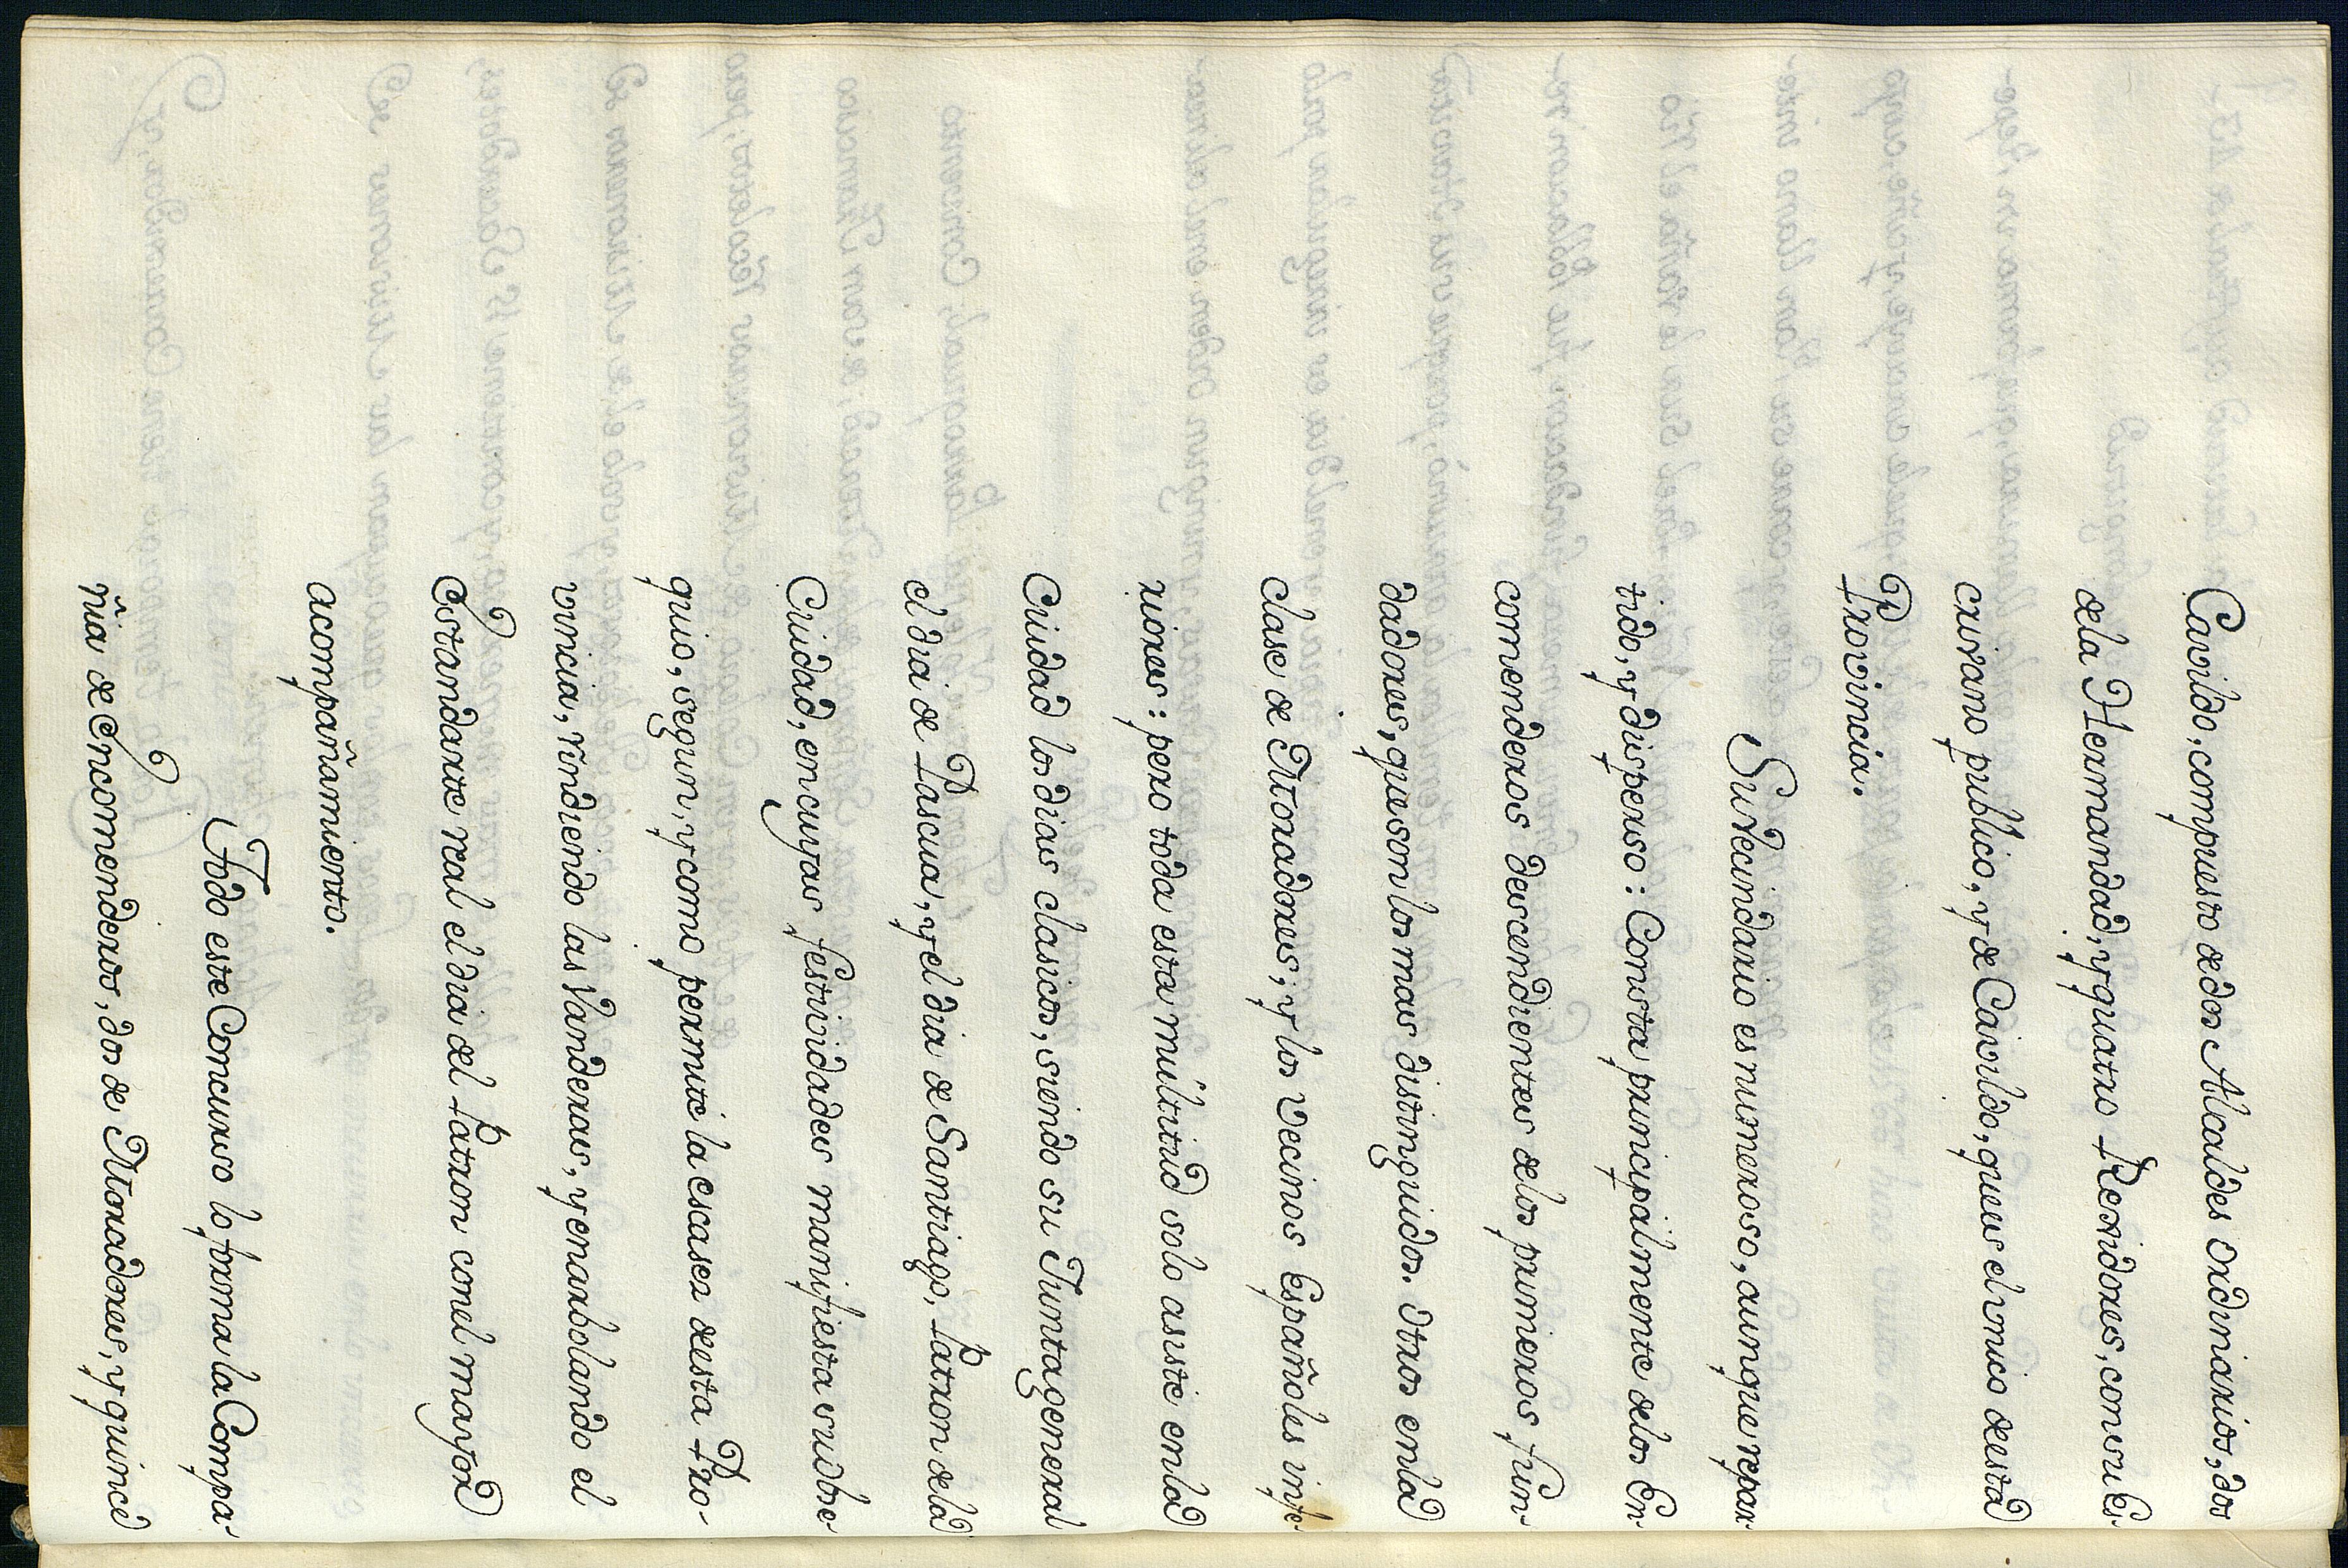 Cavildo, compuesto de dos Alcaldes ordinarios, dos
de la Hermandad, y quatro Rexidores, con su Es-
crivano publico, y de Cavildo, que es el unico de esta
Provincia.
Su Vecindario es numeroso, aunque repar-
tido, y disperso: Consta principalmente de los En-
comenderos descendientes de los primeros fun-
dadores, que son los mas distinguidos. Otros en la
clase de Moradores; y los Vecinos Españoles infe-
riores: pero toda esta multitud solo asiste en la
Ciudad los dias clasicos, siendo su Junta general
el dia de Pascua, y el dia de Santiago, Patron de la
Ciudad, en cuyas festividades manifiesta su obse-
quio, segun, y como permite la escasez de esta Pro-
vincia, rindiendo las Vanderas, y enarbolando el
Estandarte real el dia del Patron con el mayor
acompañamiento.
Todo este Concurso lo forma la Compa-
ñia de Encomenderos, dos de Moradores, y quince